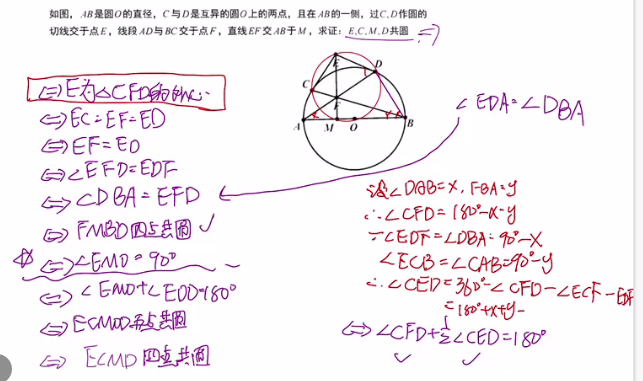 如图，AB是圆O的直径，C与D是互异的圆O上的两点，且在AB的一侧，过C,D作圆的
切线交于点E，线段AD与BC交于点F，直线EF交AB于M，求证：E,C,M,D共圆
⇔E为△CFD的外心
⇔EC=EF=ED
⇔EF=ED
⇔∠EFD=EDF
⇔∠DBA=EFD
⇔FMBD四点共圆✓
⇔∠EMO=90°
⇔∠EMO+∠EOD=180°
⇔ECMOD五点共圆
⇔ECMD四点共圆
E
D
C
F
A
M
O
B
∠EDA=∠DBA
设∠DAB=x, FBA=y
∴∠CFD=180°-x-y
∵∠EDF=∠DBA=90°-x
∠ECB=∠CAB=90°-y
∴∠CED=360°-∠CFD-∠ECF-EDF
=180°+x+y-
⇔∠CFD+½∠CED=180°
✓ ✓